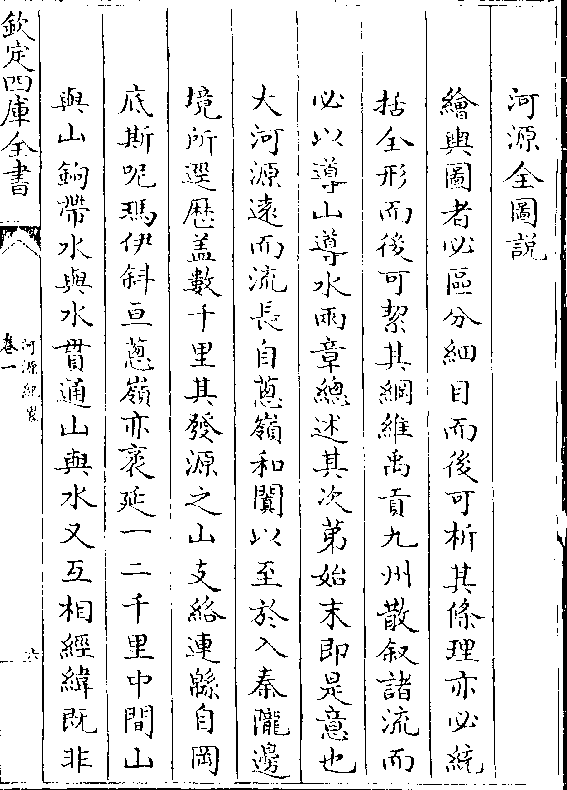 河源全圖說
繪輿圖者必區分細目而後可析其條理亦必統
括全形而後可挈其綱維禹貢九州散叙諸流而
必以導山導水兩章總述其次第始末即是意也
大河源遠而流長自蔥嶺和闐以至於入秦隴邊
境所逕歷蓋數千里其發源之山支絡連緜自岡
底斯呢瑪伊斜亘蔥嶺亦袤延一二千里中間山
與山鉤帶水與水貫通山與水又互相經緯既非
欽定四庫全書
河源紀畧
卷一
六